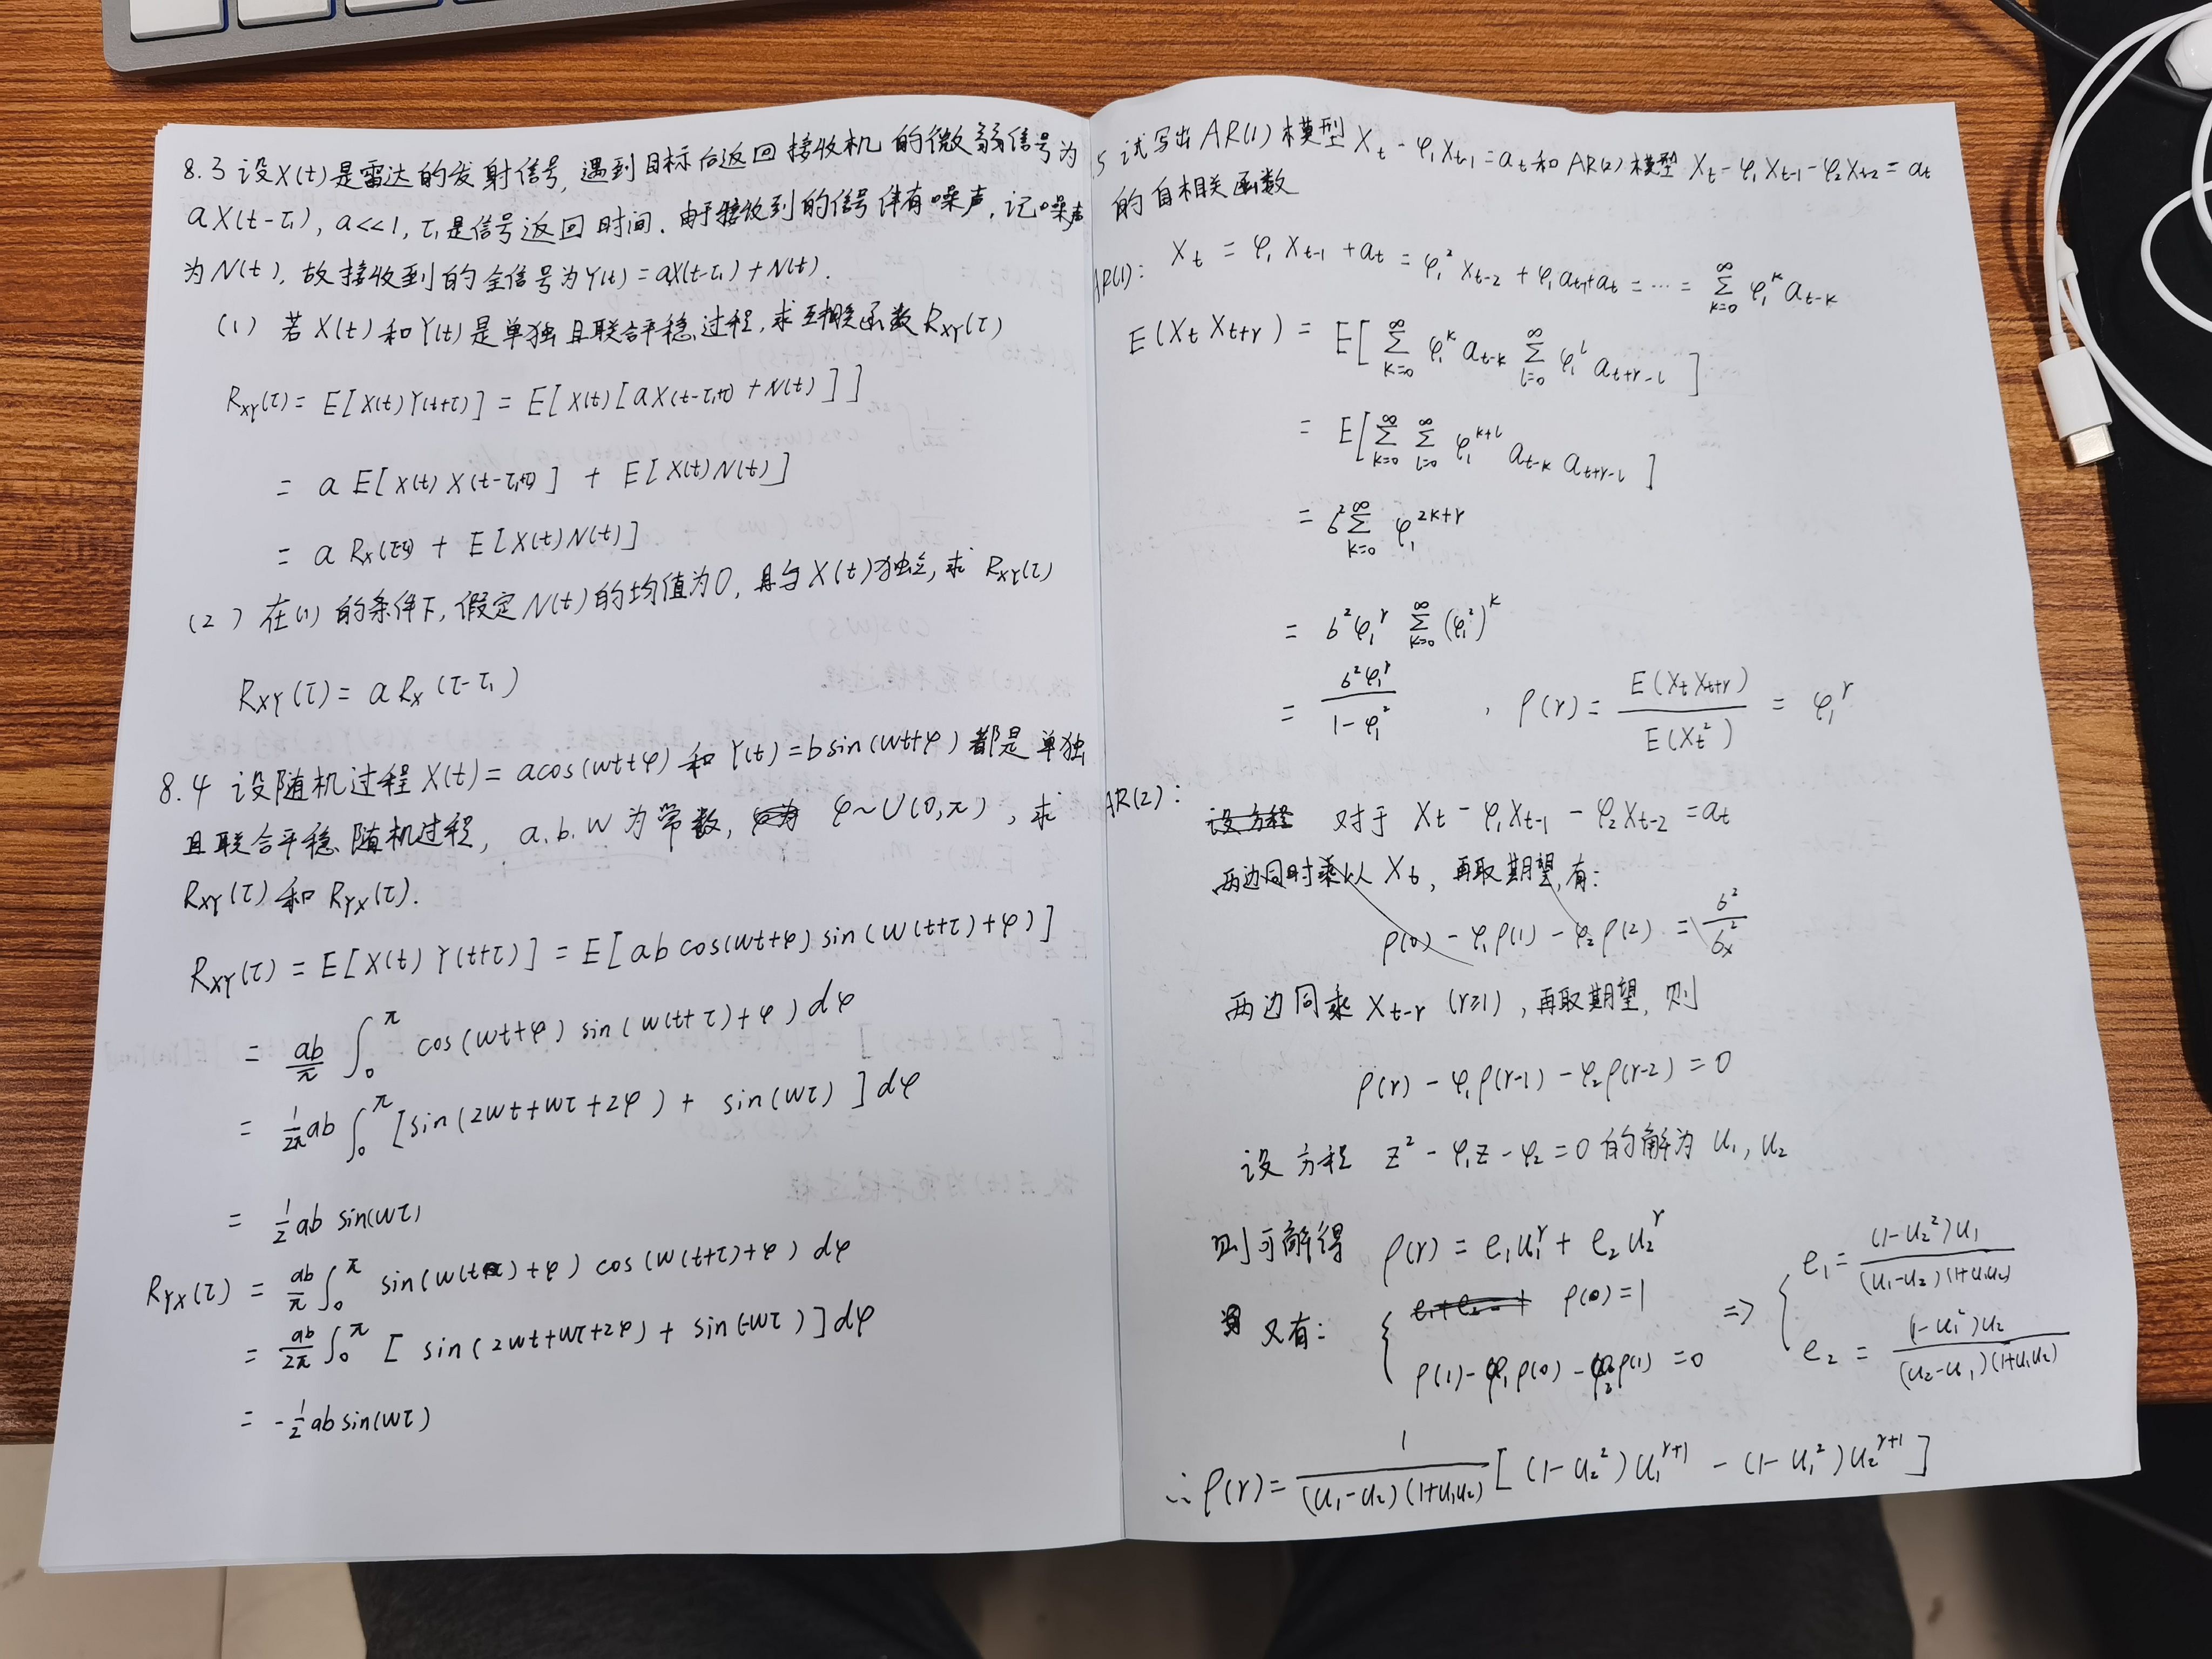 8.3 设X(t)是雷达的发射信号, 遇到目标后返回接收机的微弱信号为
aX(t-τ₁), a<<1, τ₁是信号返回时间. 由于接收到的信号伴有噪声, 记噪声
为N(t), 故接收到的全信号为Y(t)=aX(t-τ₁)+N(t).
(1) 若X(t)和Y(t)是单独且联合平稳过程, 求互相关函数R_XY(τ)
R_XY(τ) = E[X(t)Y(t+τ)] = E[X(t)[aX(t-τ₁+τ) + N(t)]]
= a E[X(t)X(t-τ₁+τ)] + E[X(t)N(t)]
= a R_X(τ-τ₁) + E[X(t)N(t)]
(2) 在(1)的条件下, 假定N(t)的均值为0, 且与X(t)独立, 求R_XY(τ)
R_XY(τ) = a R_X(τ-τ₁)
8.4 设随机过程X(t)=acos(wt+φ)和Y(t)=bsin(wt+φ)都是单独
且联合平稳随机过程, a.b.w为常数, φ~U(0,π), 求
R_XY(τ)和R_YX(τ).
R_XY(τ) = E[X(t)Y(t+τ)] = E[ab cos(wt+φ) sin(w(t+τ)+φ)]
= ab/π ∫₀^π cos(wt+φ) sin(w(t+τ)+φ) dφ
= 1/2π ab ∫₀^π [sin(2wt+wτ+2φ) + sin(wτ)] dφ
= 1/2 ab sin(wτ)
R_YX(τ) = ab/π ∫₀^π sin(w(t)+φ) cos(w(t+τ)+φ) dφ
= ab/2π ∫₀^π [sin(2wt+wτ+2φ) + sin(-wτ)] dφ
= -1/2 ab sin(wτ)
5 试写出AR(1)模型 X_t - φ₁X_{t-1} = a_t 和AR(2)模型 X_t - φ₁X_{t-1} - φ₂X_{t-2} = a_t
的自相关函数
AR(1): X_t = φ₁X_{t-1} + a_t = φ₁²X_{t-2} + φ₁a_{t-1} + a_t = … = Σ_{k=0}^∞ φ₁^k a_{t-k}
E(X_t X_{t+r}) = E[Σ_{k=0}^∞ φ₁^k a_{t-k} Σ_{l=0}^∞ φ₁^l a_{t+r-l}]
= E[Σ_{k=0}^∞ Σ_{l=0}^∞ φ₁^{k+l} a_{t-k} a_{t+r-l}]
= б² Σ_{k=0}^∞ φ₁^{2k+r}
= б²φ₁^r Σ_{k=0}^∞ (φ₁²)^k
= б²φ₁^r / (1-φ₁²) , ρ(r) = E(X_t X_{t+r}) / E(X_t²) = φ₁^r
AR(2): 设方程 对于 X_t - φ₁X_{t-1} - φ₂X_{t-2} = a_t
两边同时乘以 X_t, 再取期望, 有:
ρ(0) - φ₁ρ(1) - φ₂ρ(2) = б²/б_x²
两边同乘 X_{t-r} (r≥1), 再取期望, 则
ρ(r) - φ₁ρ(r-1) - φ₂ρ(r-2) = 0
设方程 z² - φ₁z - φ₂ = 0 的解为 u₁, u₂
则可解得 ρ(r) = e₁u₁^r + e₂u₂^r
又有: { e₁+e₂=1 ρ(0)=1
ρ(1) - φ₁ρ(0) - φ₂ρ(1) = 0
=> { e₁ = (1-u₂²)u₁ / (u₁-u₂)(1+u₁u₂)
e₂ = (1-u₁²)u₂ / (u₂-u₁)(1+u₁u₂)
∴ ρ(r) = 1/(u₁-u₂)(1+u₁u₂) [(1-u₂²)u₁^{r+1} - (1-u₁²)u₂^{r+1}]